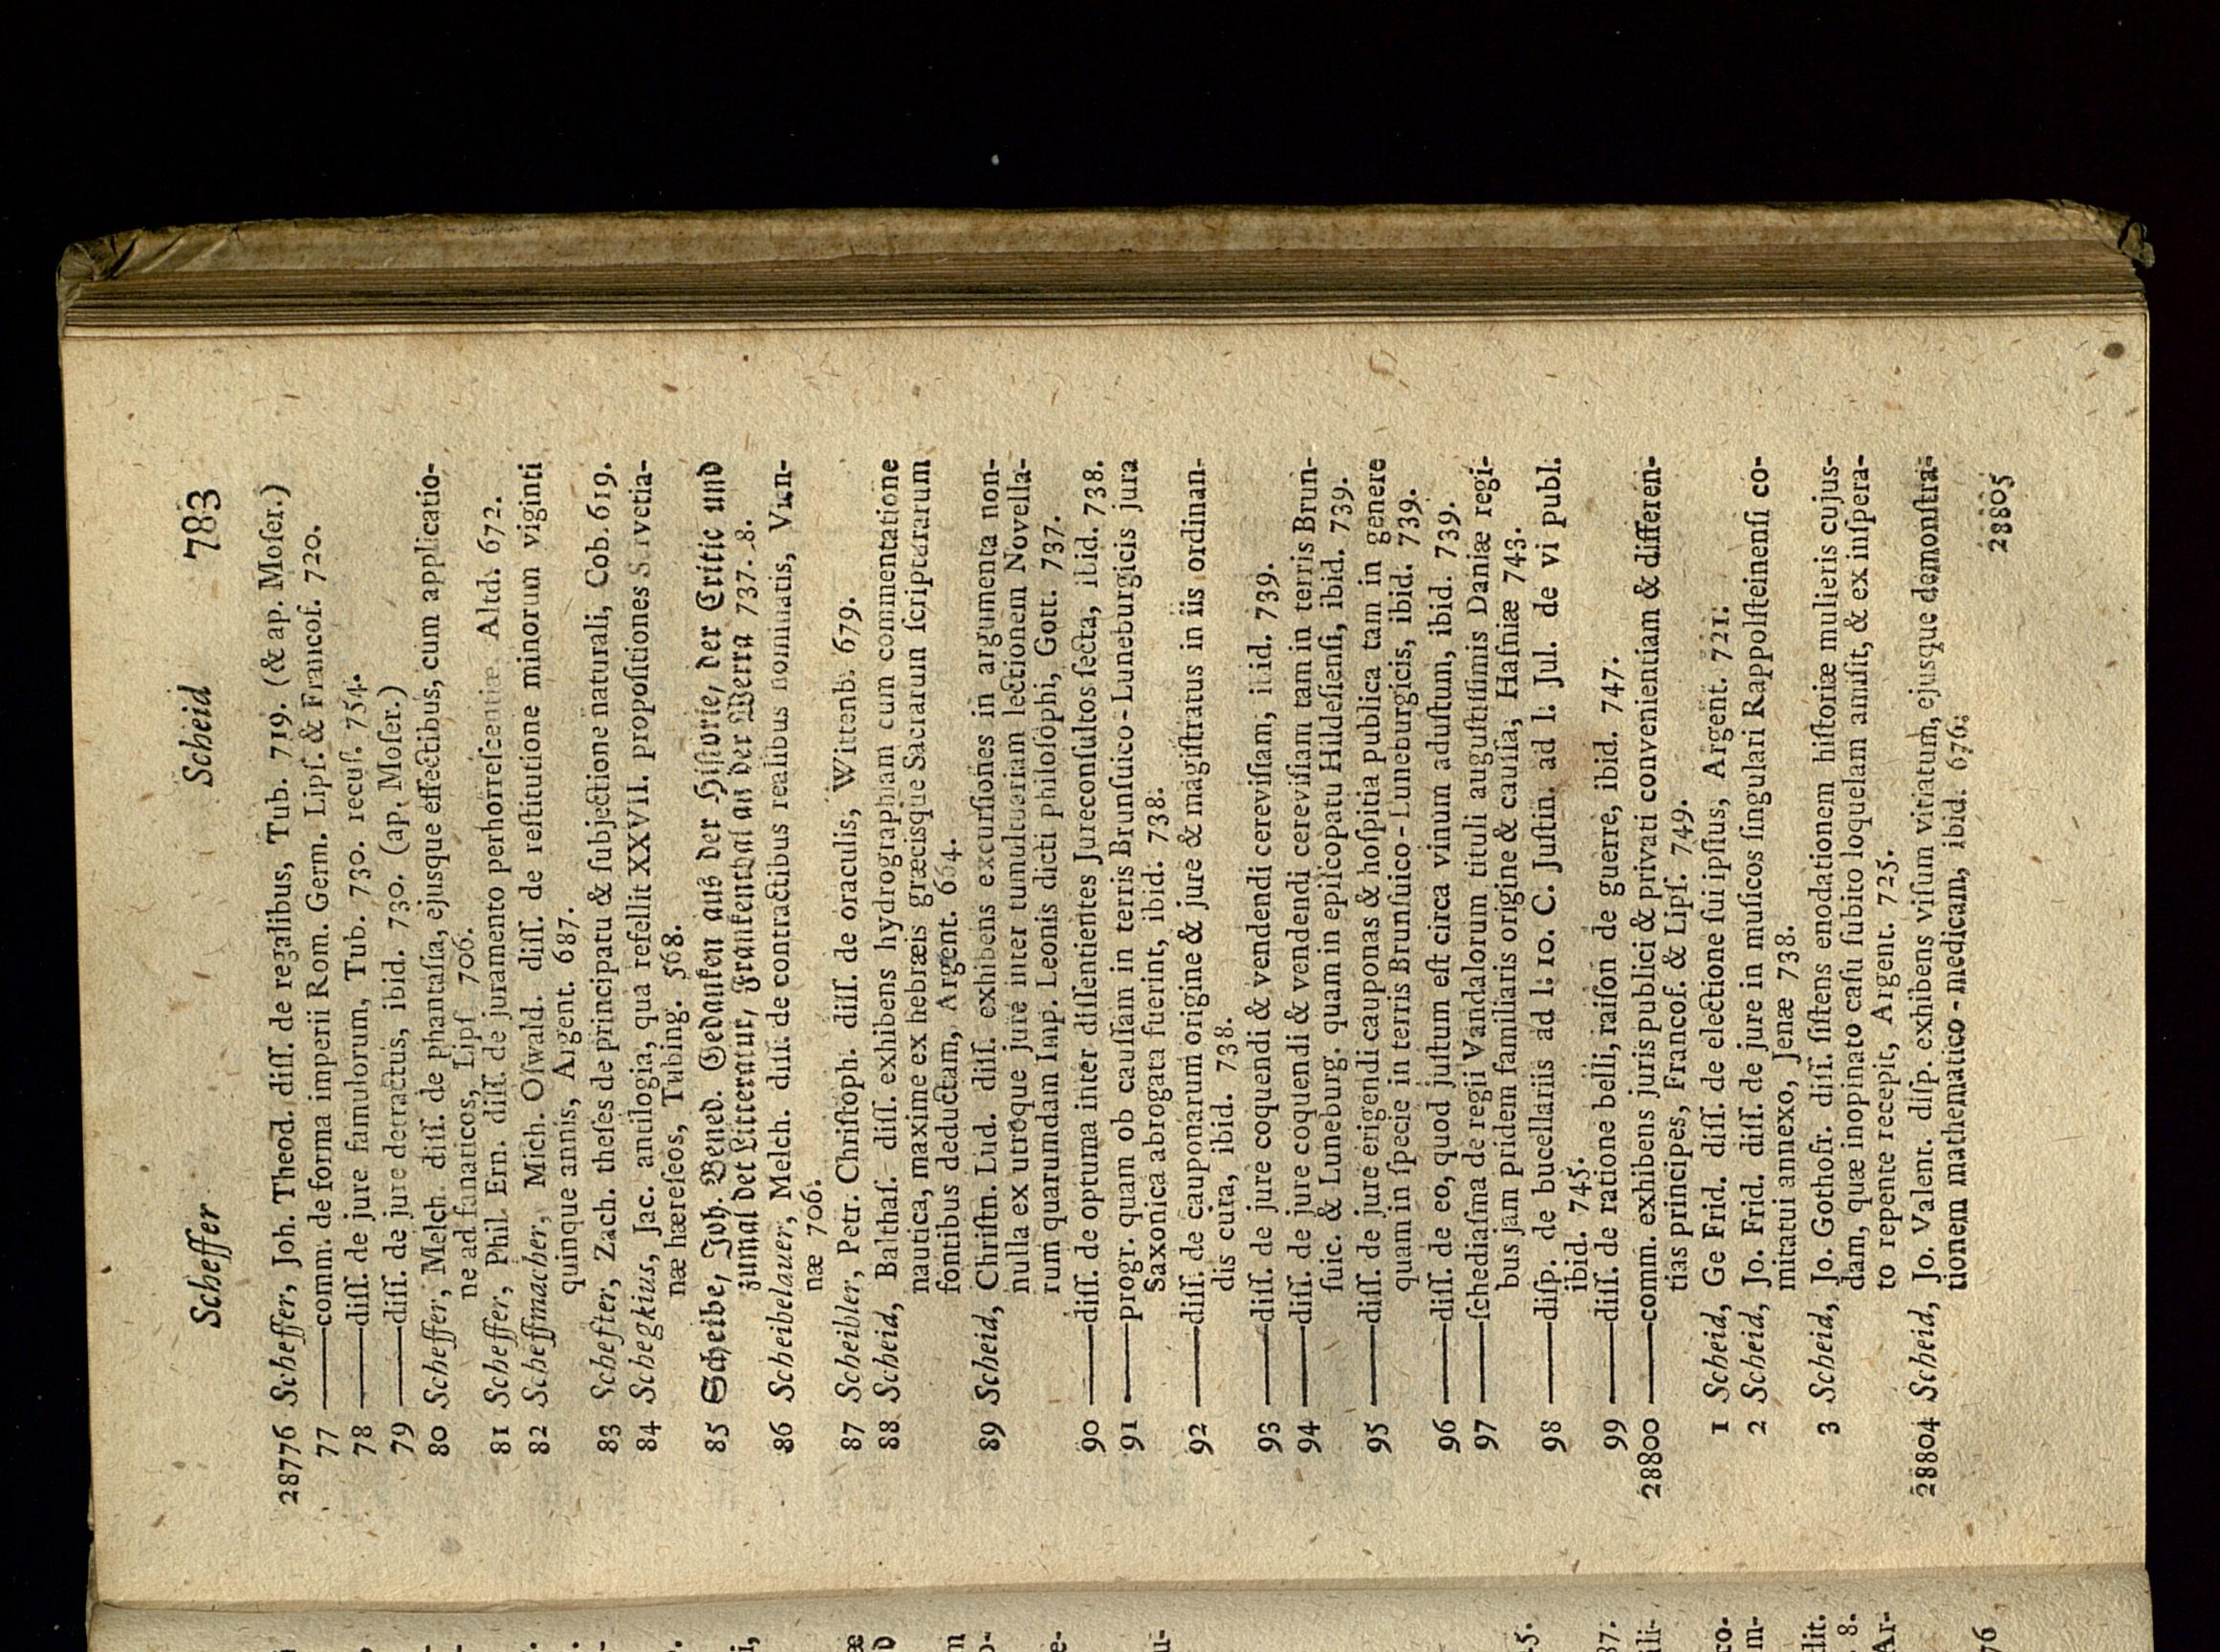 Scheffer Scheid 783
28776 Scheffer, Joh. Theod. diſſ. de regalibus, Tub. 719. (& ap. Moſer.)
77 ——comm. de forma imperii Rom. Germ. Lipſ. & Francof. 720.
78 ——diſſ. de jure famulorum, Tub. 730. recuſ. 754.
79 ——diſſ. de jure detractus, ibid. 730. (ap. Moſer.)
80 Scheffer, Melch. diſſ. de phantaſia, ejusque effectibus, cum applicatio-
ne ad fanaticos, Lipſ 706.
81 Scheffer, Phil. Ern. diſſ. de juramento perhorreſcentiæ Altd. 672.
82 Scheffmacher, Mich. Oſwald. diſſ. de reſtitutione minorum viginti
quinque annis, Argent. 687.
83 Schefter, Zach. theſes de principatu & ſubjectione naturali, Cob. 619.
84 Schegkius, Jac. antilogia, qua refellit XXVII. propoſitiones Servetia-
næ hæreſeos, Tubing. 568.
85 Scheibe, Joh. Bened. Gedanken aus der Hiſtorie, der Critic und
zumal der Litteratur, Frankenthal an der Werra 737.-8.
86 Scheibelauer, Melch. diſſ. de contractibus realibus nominatis, Vien-
næ 706.
87 Scheibler, Petr. Chriſtoph. diſſ. de oraculis, Wittenb. 679.
88 Scheid, Balthaſ. diſſ. exhibens hydrographiam cum commentatione
nautica, maxime ex hebræis græcisque Sacrarum ſcripturarum
fontibus deductam, Argent. 664.
89 Scheid, Chriſtn. Lud. diſſ. exhibens excurſiones in argumenta non-
nulla ex utroque jure inter tumultuariam lectionem Novella-
rum quarumdam Imp. Leonis dicti philoſophi, Gott. 737.
90 ——diſſ. de optuma inter diſſentientes Jureconſultos ſecta, ibid. 738.
91 ——progr. quam ob cauſſam in terris Brunſuico-Luneburgicis jura
Saxonica abrogata fuerint, ibid. 738.
92 ——diſſ. de cauponarum origine & jure & magiſtratus in iis ordinan-
dis cura, ibid. 738.
93 ——diſſ. de jure coquendi & vendendi cereviſiam, ibid. 739.
94 ——diſſ. de jure coquendi & vendendi cereviſiam tam in terris Brun-
ſuic. & Luneburg. quam in epiſcopatu Hildeſienſi, ibid. 739.
95 ——diſſ. de jure erigendi cauponas & hoſpitia publica tam in genere
quam in ſpecie in terris Brunſuico-Luneburgicis, ibid. 739.
96 ——diſſ. de eo, quod juſtum eſt circa vinum aduſtum, ibid. 739.
97 ——ſchediaſma de regii Vandalorum tituli auguſtiſſimis Daniæ regi-
bus jam pridem familiaris origine & cauſſa, Hafniæ 743.
98 ——diſp. de bucellariis ad l. 10. C. Juſtin. ad l. Jul. de vi publ.
ibid. 745.
99 ——diſſ. de ratione belli, raiſon de guerre, ibid. 747.
28800 ——comm. exhibens juris publici & privati convenientiam & differen-
tias principes, Francof. & Lipſ. 749.
1 Scheid, Ge Frid. diſſ. de electione ſui ipſius, Argent. 721.
2 Scheid, Jo. Frid. diſſ. de jure in muſicos ſingulari Rappolſteinenſi co-
mitatui annexo, Jenæ 738.
3 Scheid, Jo. Gothofr. diſſ. ſiſtens enodationem hiſtoriæ mulieris cujus-
dam, quæ inopinato caſu ſubito loquelam amiſit, & ex inſpera-
to repente recepit, Argent. 725.
28804 Scheid, Jo. Valent. diſp. exhibens viſum vitiatum, ejusque demonſtra-
tionem mathematico-medicam, ibid. 676.
28805